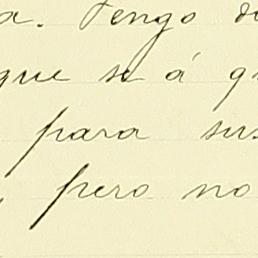 a. Tengo
que se á
para
, pero no